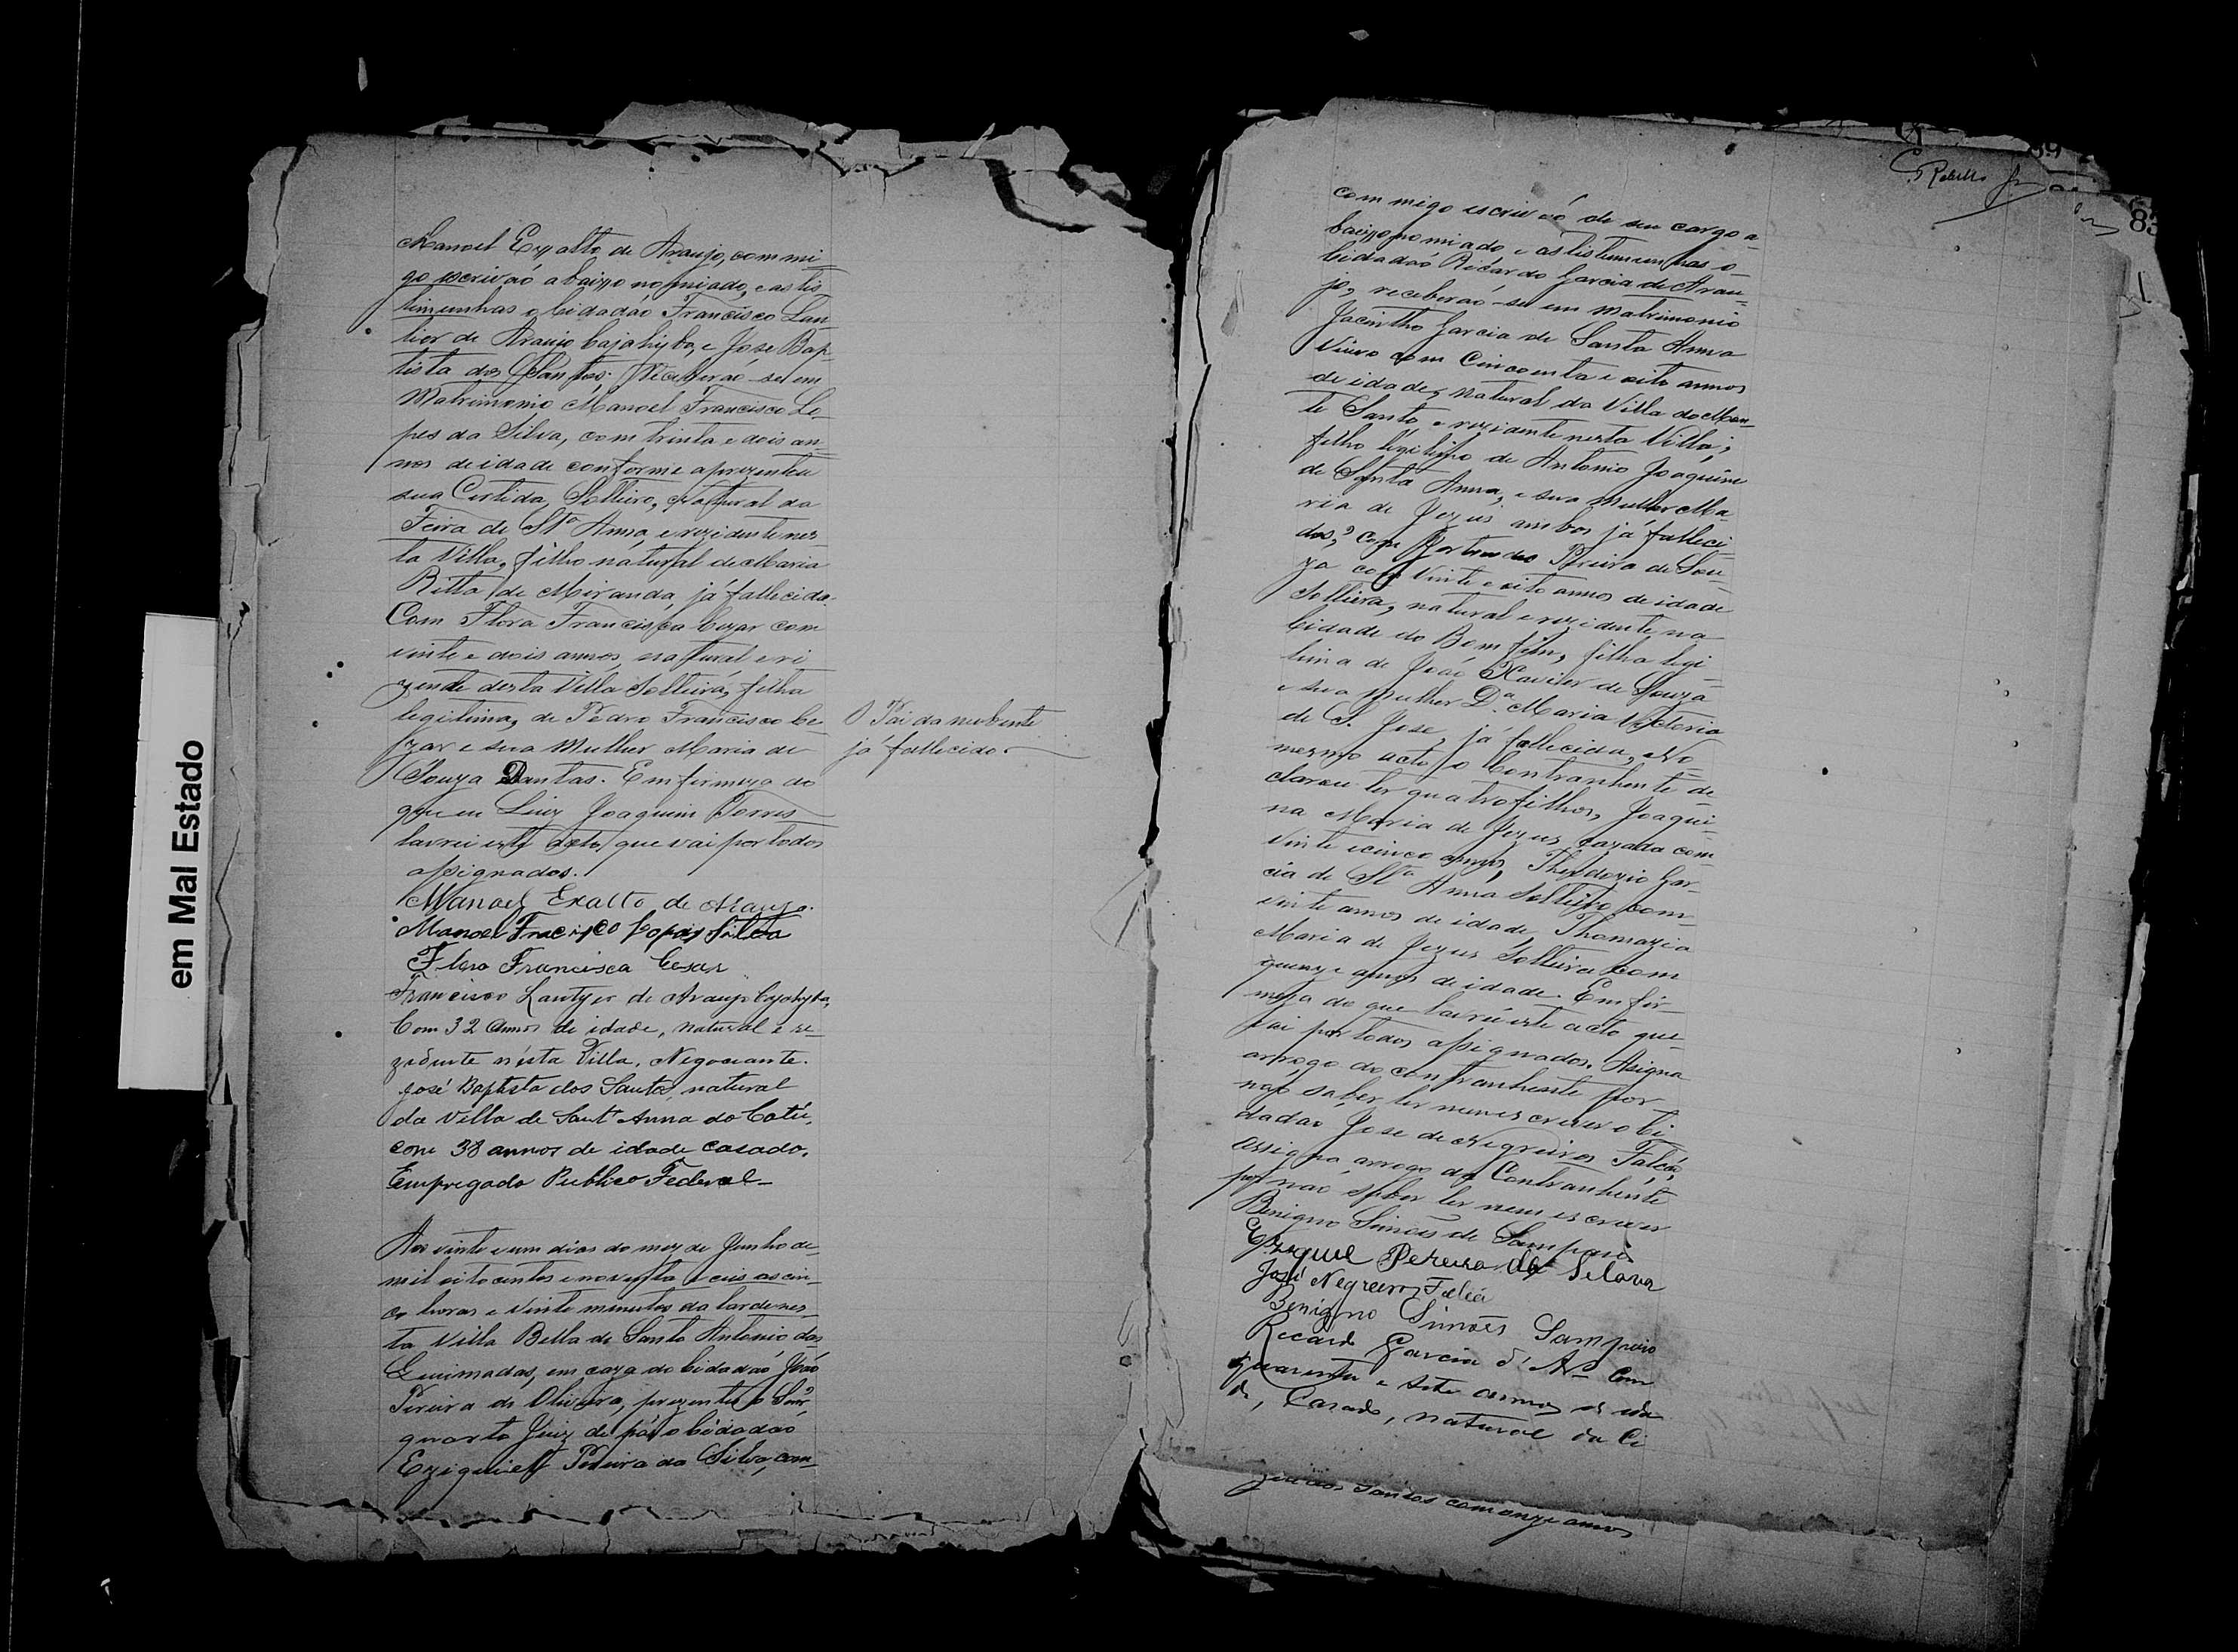 em Mal Estado
Manoel Exalto de Araujo, commi
go escrivaõ abaixo nomiado, e as tis
timunhas o Cidadaõ Francisco Lan
tier de Araujo Cajahyba, e Jose Bap
tista dos Santos; Receberaõ-se em
Matrimonio Manoel Francisco Lo
pes da Silva, com trinta e dois an
nos de idade conforme aprezentou
sua Certida, Solteiro, natural da
Feira de Stª Anna, e rezidente nes
ta Villa, filho natural de Maria
Ritta de Miranda, já fallecida.
Com Flora Francisca Cezar com
vinte e dois annos, natural e ri
zende desta Villa Solteira, filha
legitima, de Pedro Francisco Ce
zar e sua Mulher Maria de
Souza Dantas. Em firmeza do
que eu Luiz Joaquim Torres
lavrei este acto, que vai por todos
assignados.
O Pai da nubente
já fallecido.
Manoel Exalto de Araujo.
Manoel Francisco Lopes Silva
Flora Francisca Cesar
Francisco Lantyer de Araujo Cajahyba,
Com 32 annos de idade, natural e re-
zidente nésta Villa. Negociante.
José Baptista dos Santos, natural
da Villa de Sant'Anna do Catú,
com 38 annos de idade casado,
Empregado Publico Federal-
Aos vinte e um dias do mez de Junho de
mil oito centos e noventa e ceis as cin-
co horas e vinte minutos da tarde nes-
ta Villa Bella de Santo Antonio das
Queimadas, em caza do Cidadaõ João
Pereira de Oliveira, prezente o Snr
quarto Juiz de páz o Cidadaõ
Eziquiel Pereira da Silva, com-
83
commigo escrivaõ de seu cargo a-
baixo nomiado e as tistumunhas o
Cidadaõ Ricardo Garcia de Arau-
jo, receberaõ-se em matrimonio
Jacintho Garcia de Santa Anna
Viuvo com Cincoenta e oito annos
de idade, natural da Villa do Mon-
te Santo e rezidente nesta Villa;
filho legitimo de Antonio Joaquim
de Santa Anna, e sua mulher Ma-
ria de Jezus ambos já falleci-
dos, com Pereira de Sou-
za com Vinte e oito annos de idade
Solteira, natural e rezidente na
Cidade do Bomfim, filha legi-
tima de Joaõ Xavier de Souza
e sua mulher Dª Maria Victoria
de S. Jose, já fallecida, No
mesmo acto o Contranhente de-
clarou ter quatro filhos, Joaqui-
na Maria de Jezus, cazada com
vinte e cinco annos, Theodozio Gar-
cia de Stª Anna Solteiro com
vinte annos de idade, Thomazia
Maria de Jezus Solteira com
quinze annos de idade. Em fir-
meza do que lavrei este acto que
vai por todos assignados. Asigna
arrogo do contranhente por
naõ saber ler nem escrever o Ci-
dadaõ Jose de Negreiros Falcão,
assigna arrogo da Contranhente
por naõ saber ler nem escrever
Benigno Simões de Sampaio
Pereira da Silava
José Negreiros Falcã
Benigno Simões Sampaio
Ricardo Garcia d' Arº Com
quarenta e sete annos de ida
de, Casado, natural da Ci
dos Santos com onze annos